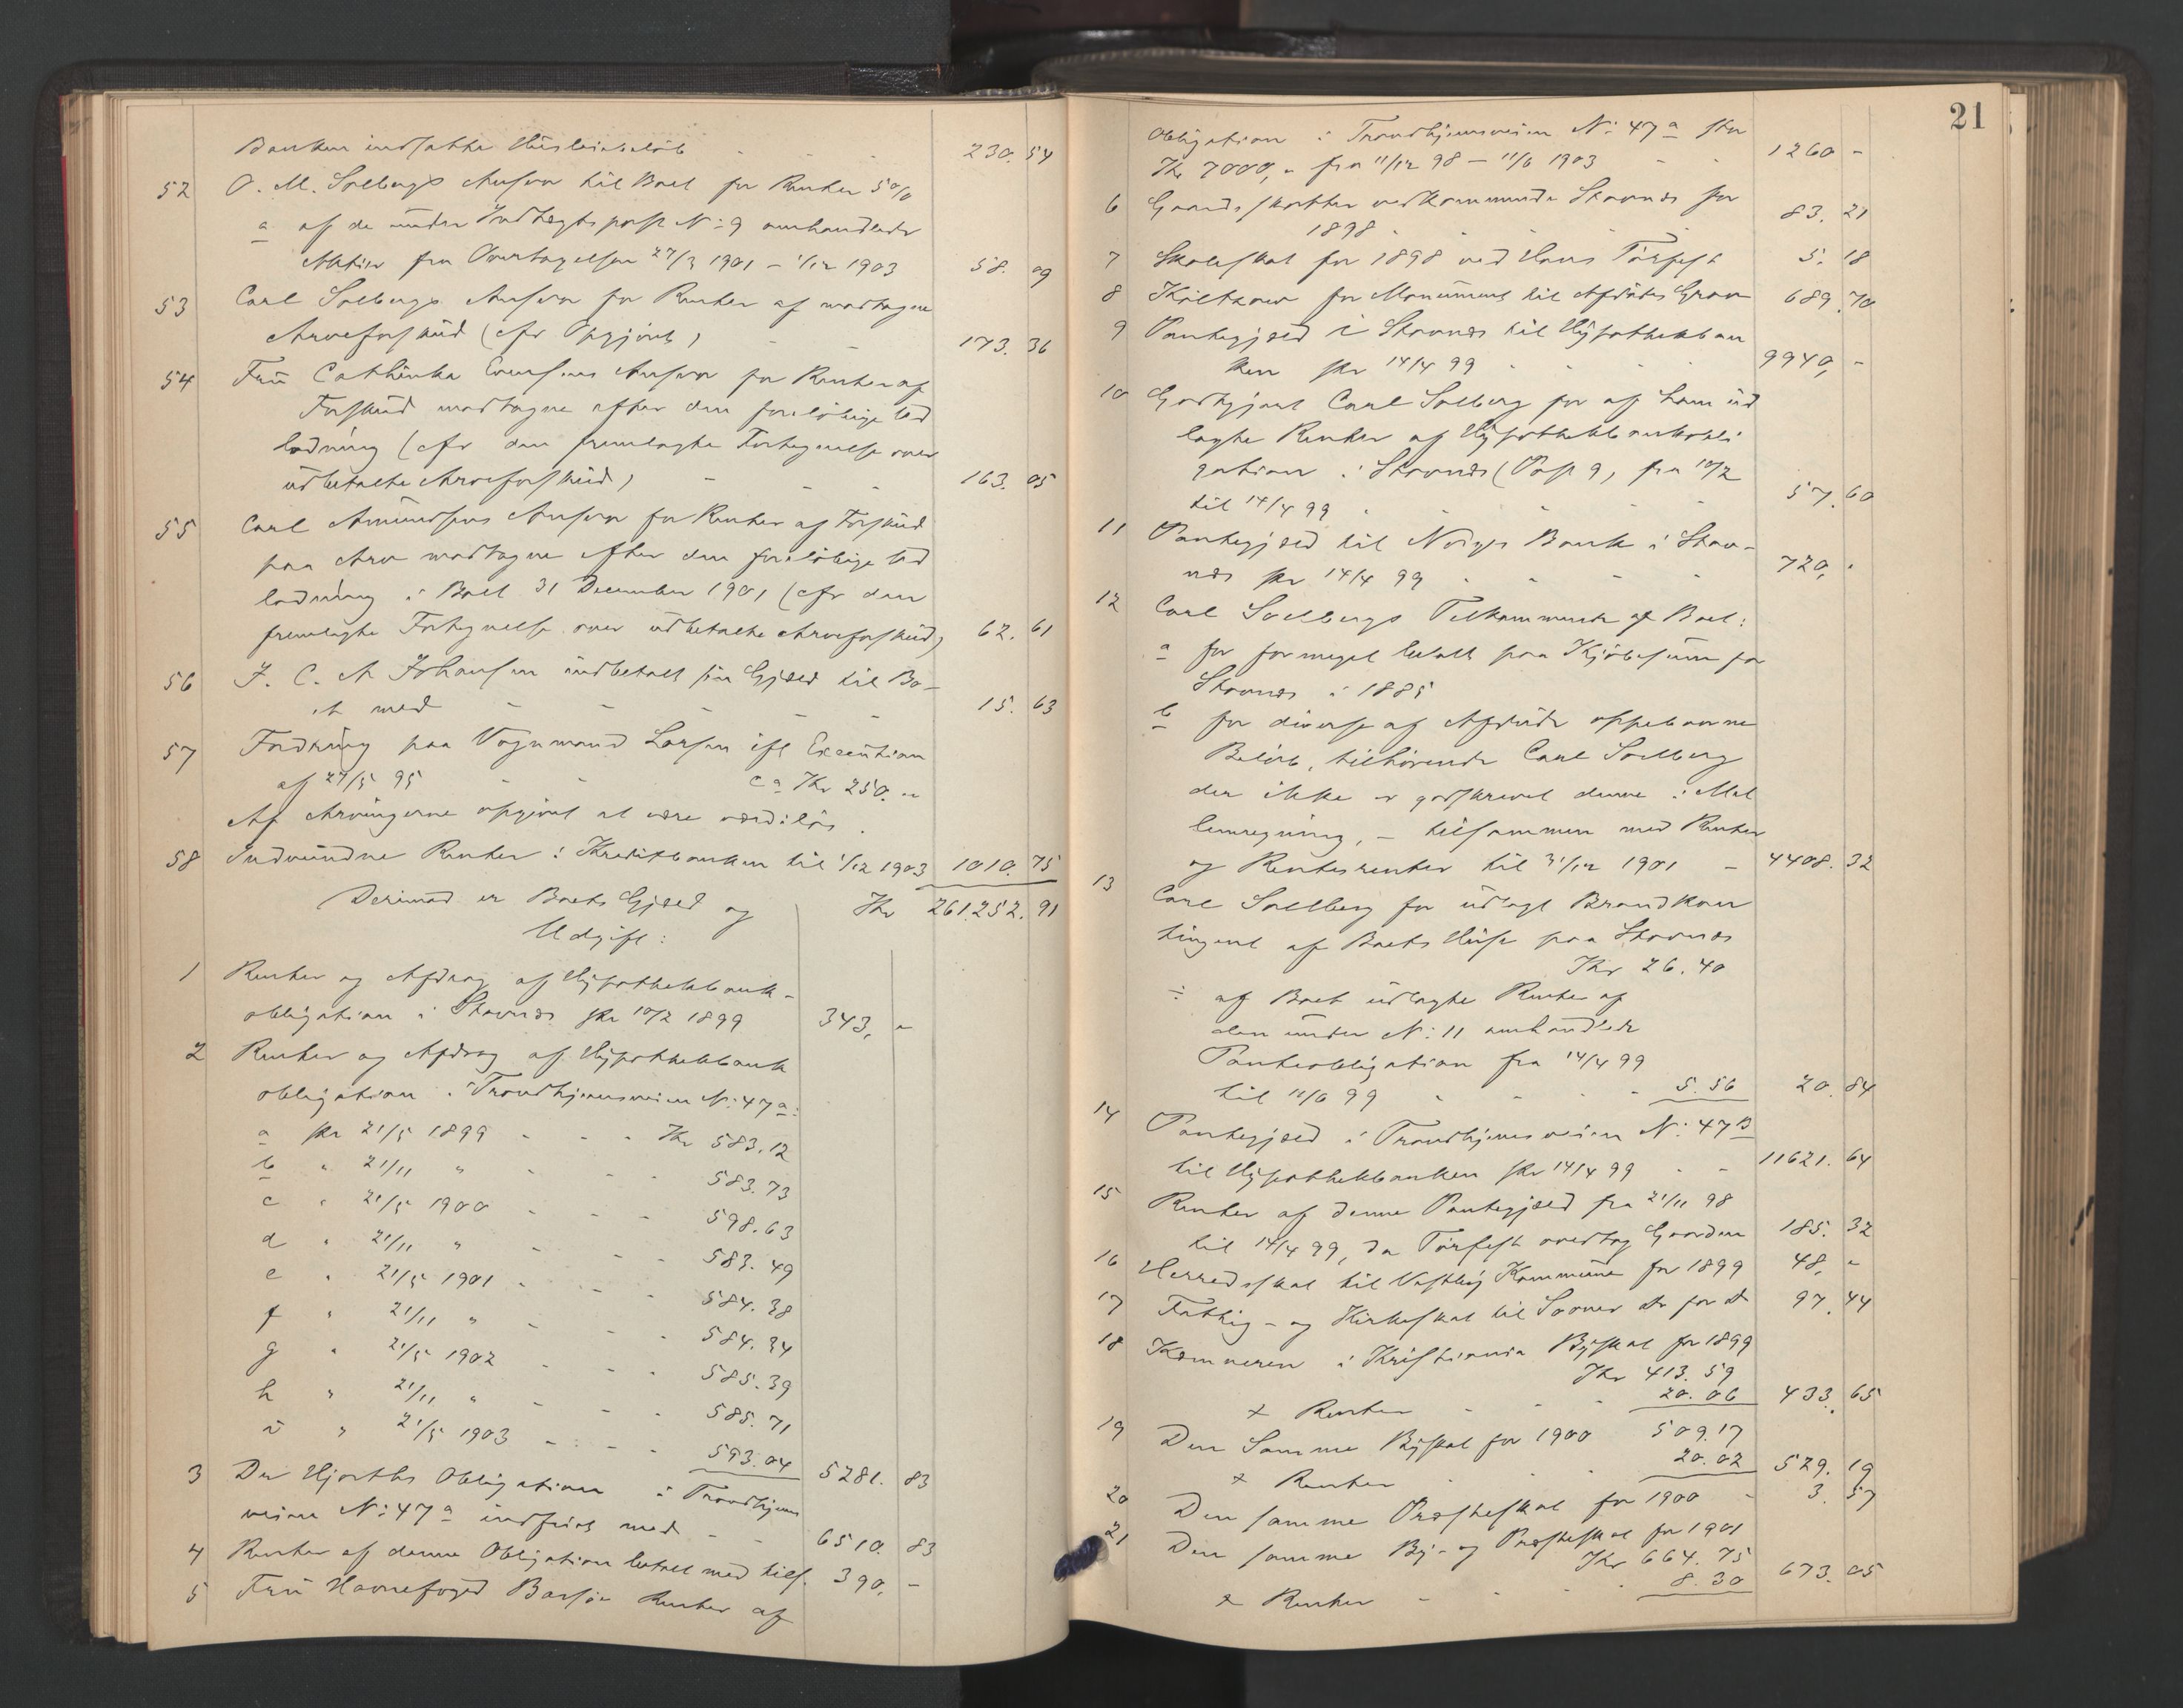 Banken indsatte Husleiebeløb - - - 230.54
52 O. M. Solbergs Ansvar til Boet for Renter 5 o/o
a af de under Indtægtspost N: 9 omhandlede
Aktier fra Overtagelsen 27/3 1901 - 1/12 1903 58.09
53 Carl Solbergs Ansvar for Renter af modtagne
Arveforskud (cfr Opgjøret) - - 173.36
54 Fru Cathinka Evensens Ansvar for Renter af
Forskud modtagne efter den foreløbige Ud
lodning (cfr den fremlagte Fortegnelse over
udbetalte Arveforskud) - - - 163.05
55 Carl Amundsens Ansvar for Renter af Forskud
paa Arv modtagne efter den foreløbige Ud
lodning i Boet 31 December 1901 (cfr den
fremlagte Fortegnelse over udbetalte Arveforskud) 62.61
56 J. C. A Johansen indbetalt sin Gjæld til Bo-
et med - - - - - 15.63
57 Fordring paa Vognmand Larsen ifl Execution
af 27/5 95 - - ca Kr 250.-
Af Arvingerne opgivet at være værdiløs.
58 Indvundne Renter i Kreditbanken til 1/12 1903 1010.75
Kr 261.252.91
Derimod er Boets Gjæld og
Udgift:
1 Renter og Afdrag af Hypothekbank-
obligation i Stovnes pr 10/2 1899 343,-
2 Renter og Afdrag af Hypothekbank
obligation i Trondhjemsveien N: 47a:
a pr 21/5 1899 - - - Kr 583.12
b " 21/11 " - - - 583.73
c " 21/5 1900 - - - 598.63
d " 21/11 " - - - 583.49
e " 21/5 1901 - - - 584.38
f " 21/11 " - - - 584.34
g " 21/5 1902 - - - 585.39
h " 21/11 " - - - 585.71
i " 21/5 1903 - - - 593.04 5281.83
3 Dr Hjorths Obligation i Trondhjems
veien N: 47a indfriet med - - 6510.83
4 Renter af denne Obligation betalt med tils. 390,-
5 Fru Havnefoged Renter af
21
Obligation i Trondhjemsveien N: 47a stor
Kr 7000,- fra 11/12 98 - 11/6 1903 - - 1260 -
6 Gaardsskatter vedkommende Stovnes for
1898 - - - - 83.21
7 Skoleskat for 1898 ved Hans Tørfest 5.18
8 for Monument til Afdødes Grav 689.70
9 Pantegjæld i Stovnes til Hypothekban
ken pr 14/4 99 - - - - 9940,-
10 Godtgjort Carl Solberg for af ham ud
lagte Renter af Hypothekbankobli
gation i Stovnes (Post 9) fra 10/2
til 14/4 99 - - - - 57.60
11 Pantegjæld til Norges Bank i Stov-
nes pr 14/4 99 - - - - 720,-
12 Carl Solbergs Tilkommende af Boet:
a for formeget betalt paa Kjøbesum for
Stovnes i 1885
b for diverse af Afdøde oppebaarne
Beløb, tilhørende Carl Solberg
der ikke er godskrevet denne i Mel
lemregning, - tilsammen med Renter
og Rentesrenter til 31/12 1901 - 4408.32
13 Carl Solberg for udlagt Brandkon
tingent af Boets Huse paa Stovnes
Kr 26.40
÷ af Boet udlagte Renter af
den under N: 11 omhandlede
Panteobligation fra 14/4 99
til 11/6 99 - - - - 5.56 20.84
14 Pantegjæld i Trondhjemsveien N: 47B
til Hypothekbanken pr 14/4 99 - - 11621.64
15 Renter af denne Pantegjæld fra 21/11 98
til 14/4 99, da Tørfest overtog Gaarden 185.32
16 Herredsskat til Vestby Kommune for 1899 48,-
17 Fattig- og Kirkeskat til do for do 97.44
18 Kæmneren i Kristiania Byskat for 1899
Kr 413.59
+ Renter - - - 20.06 433.65
19 Den Samme Byskat for 1900 509.17
+ Renter - - - 20.02 529.19
20 Den samme Præsteskat for 1900 - 3.57
21 Den samme By- og Præsteskat for 1901
Kr 664.75
+ Renter - - - 8.30 673.05